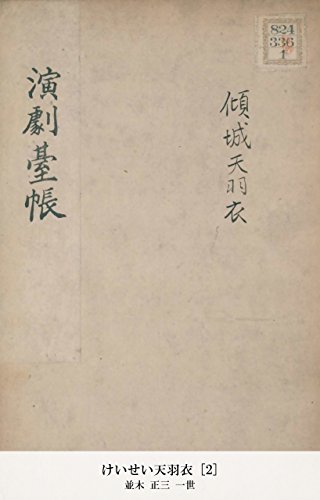 824
336
1
傾城天羽衣
演劇臺帳
けいせい天羽衣 [2]
並木 正三 一世